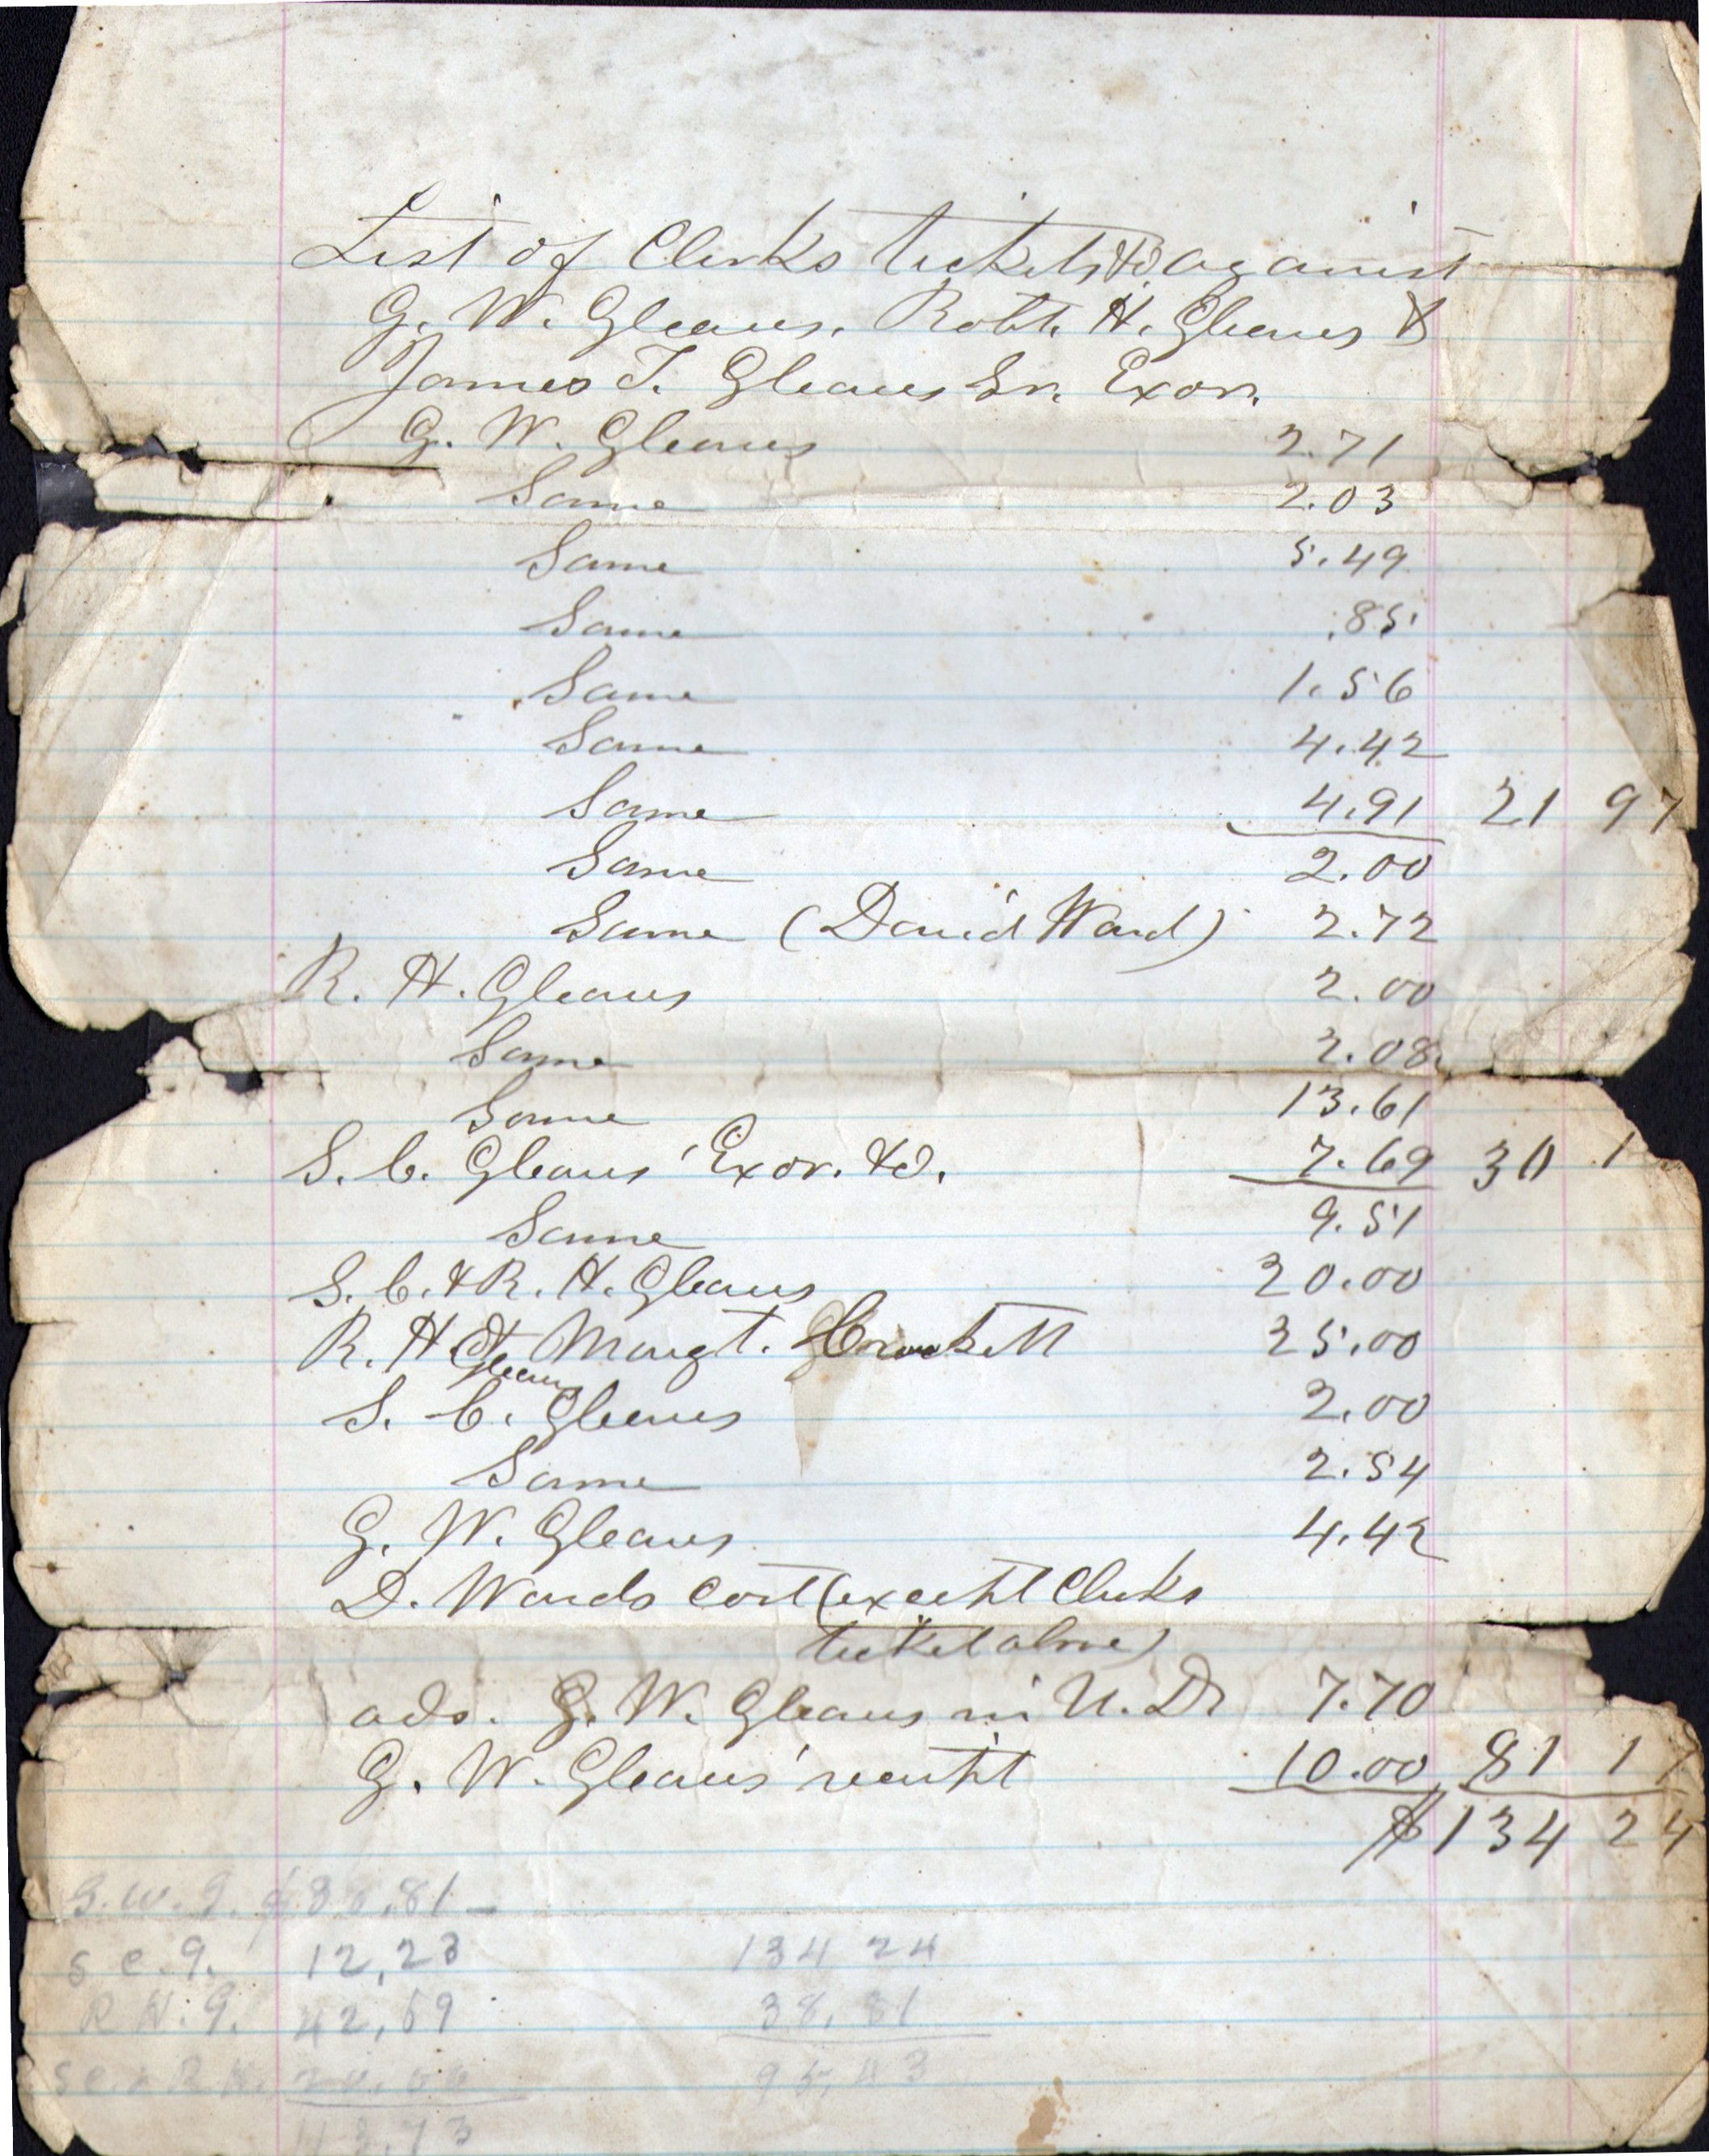 List of Clerks tickets &c against
G. W. Gleaves, Robt. H. Gleaves &
James T. Gleaves Sr. Exor.
G. W. Gleaves 2.71
Same 2.03
Same 5.49
Same .85
Same 1.56
Same 4.42
Same 4.91 21 97
Same 2.00
Same (David Ward) 2.72
R. H. Gleaves 2.00
Same 2.08
Same 13.61
S. C. Gleaves' Exor. &c. 7.69 30 1
Same 9.51
S. C. & R. H. Gleaves 20.00
R. H. Gleaves & Margt. Crockett 25.00
S. C. Gleaves 2.00
Same 2.54
G. W. Gleaves 4.42
D. Wards cost (except Clerks
ticket alone)
ads. G. W. Gleaves in U. D. 7.70
G. W. Gleaves' receipt 10.00 81 17
$134 24
G.W.G.
S C. G. 12,23 134 24
R H. G. 42,69 38,81
S C. & R H. 20.00